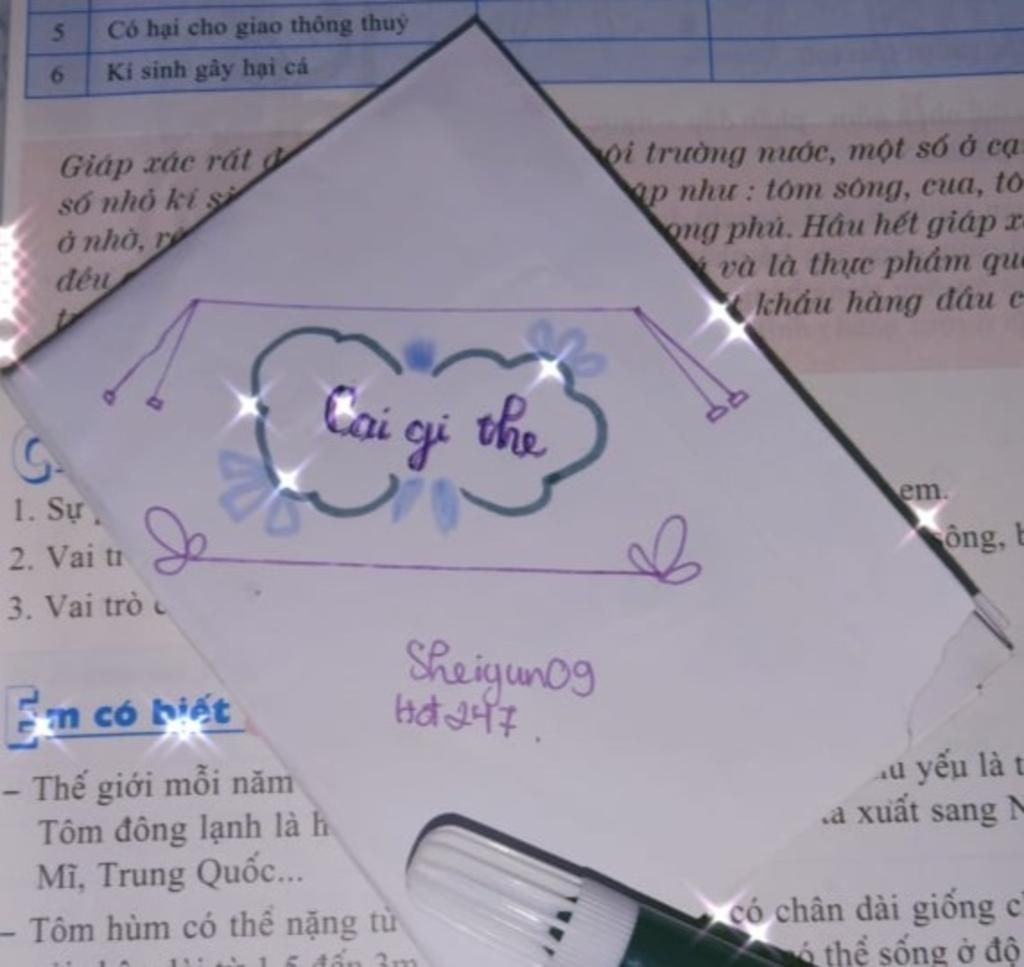 5 Có hại cho giao thông thuỷ
6 Kí sinh gây hại cá
Giáp xác rất
ôi trường nước, một số ở
số nhỏ kí
như : tôm sông, cua,
ở nhờ,
phú. Hầu hết giáp
đều
và là thực phẩm
khẩu hàng đầu
Cai gi the
1. Sự
em.
2. Vai
sông,
3. Vai trò
Sheigun09
Hot247.
Em có biết
– Thế giới mỗi năm
yếu là
Tôm đông lạnh là
xuất sang
Mĩ, Trung Quốc...
– Tôm hùm có thể nặng từ
có chân dài giống
có thể sống ở độ